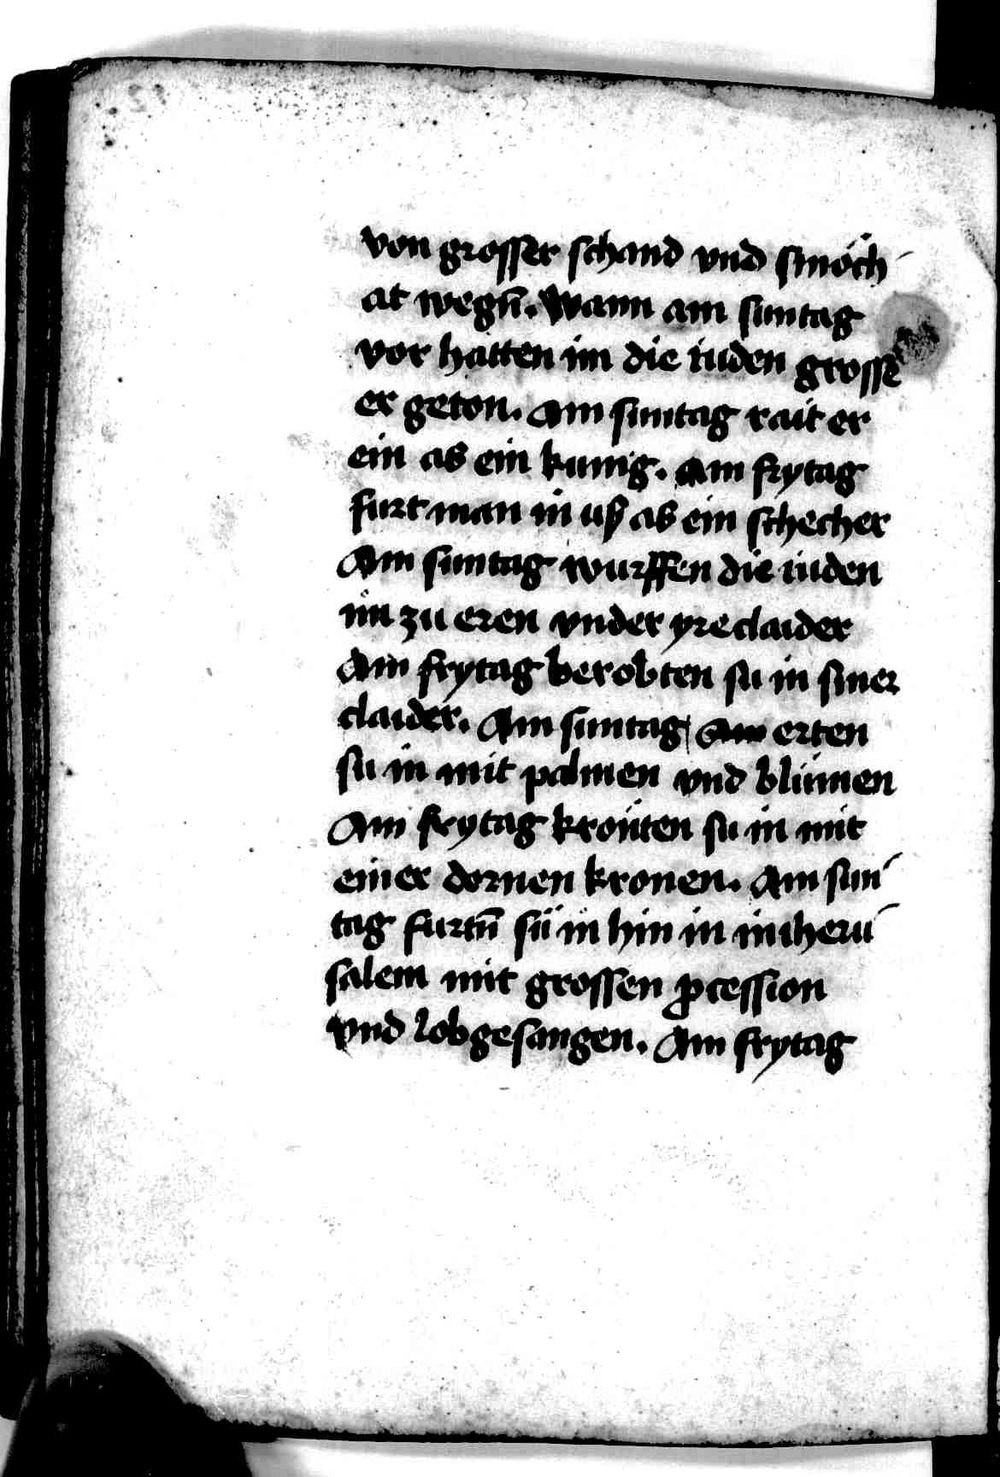 von grosser schand vnd smöch
at wegn̄. Wann am suntag
vor hatten im die iuden grosse
er geton. Am suntag rait er
ein as ein kunig. Am frytag
furt man in uß as ein schecher
Am suntag wurffen die iuden
im zu eren vnder yre claider
Am frytag berobten su in siner
claider. Am suntag erten
su in mit palmen vnd blumen
Am frytag krönten su in mit
einer dornen kronen. Am sun
tag furtn̄ sü in hin in iniheru
salem mit grossen ꝓcession
vnd lobgesangen. Am frytag